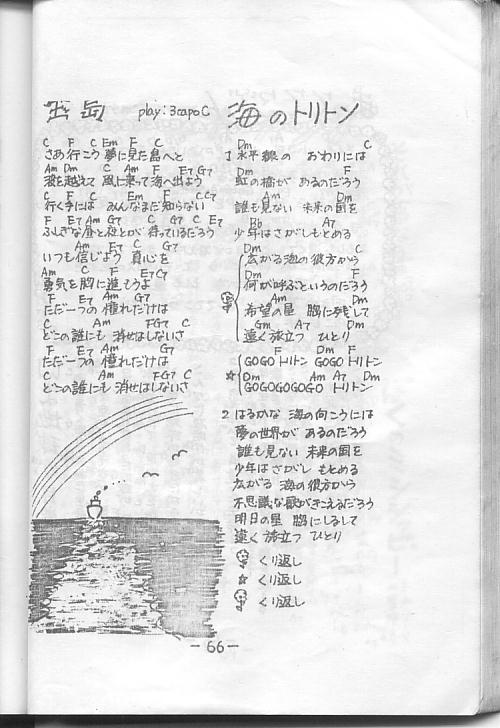 出岳 play:3capo C
C F C Em F C
さあ行こう 夢に見た島へと
Am Dm C Am F E7 G7
波を越えて 風に乗って海へ出よう
C F C Em F C C7
行く手には みんなまだ知らない
F E7 Am G7 C G7 C E7
ふしぎな昼と夜とが 待っているだろう
Am E7 C G7
いつも信じよう 真心を
Am C F E7 G7
勇気を胸に進てうよ
F E7 Am G7
ただ一つの 憧れだけは
C Am F G7 C
どこの誰にも 消せはしないさ
F E7 Am G7
ただ一つの 憧れだけは
C Am F G7 C
どこの誰にも 消せはしないさ
海のトリトン
Dm C
1 水平線の おわりには
Dm F
虹の橋が あるのだろう
Am Dm
誰も見ない 未来の国を
Bb A7
少年はさがしもとめる
Dm C
広がる海の彼方から
Dm F
何が呼ぶというのだろう
Am Dm
希望の星 胸に残して
Gm A7 Dm
遠く旅立つ ひとり
F Dm F
GOGO トリトン GOGO トリトン
☆ Dm Am A7 Dm
GOGOGOGOGO トリトン
2 はるかな 海の向こうには
夢の世界が あるのだろう
誰も見ない 未来の国を
少年はさがし もとめる
広がる 海の彼方から
不思議な歌がきこえるだろう
明日の星 胸にしるして
遠く旅立つ ひとり
くり返し
☆ くり返し
くり返し
-66-